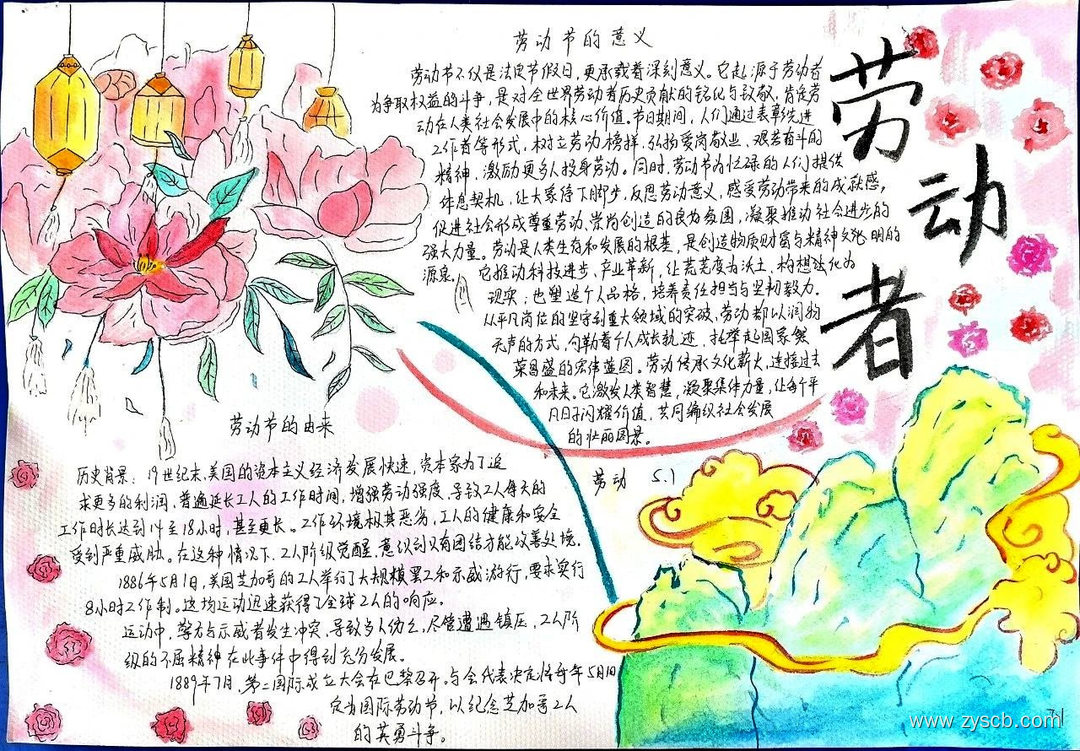 劳动节的意义
劳动节不仅是法定节假日，更承载着深刻意义。它起源于劳动者
为争取权益的斗争，是对全世界劳动者历史贡献的铭化与致敬，肯定劳
动在人类社会发展中的核心价值。节日期间，人们通过表彰先进
工作者等形式，树立劳动榜样，弘扬爱岗敬业、艰苦奋斗的
精神，激励更多人投身劳动。同时，劳动节为忙碌的人们提供
休息契机，让大家停下脚步，反思劳动意义，感受劳动带来的成就感，
促进社会形成尊重劳动、崇尚创造的良好氛围，凝聚推动社会进步的
强大力量。劳动是人类生存和发展的根基，是创造物质财富与精神文化明的
源泉。它推动科技进步、产业革新，让荒芜变为沃土，构想转化为
现实；也塑造个人品格，培养责任担当与坚韧毅力。
从平凡岗位的坚守到重大领域的突破，劳动都以润物
无声的方式，勾勒着个人成长轨迹，托举起国家繁
荣昌盛的宏伟蓝图。劳动传承文化薪火，连接过去
和未来。它激发人类智慧，凝聚集体力量，让每个平
凡日子闪耀价值，共同编织社会发展
的壮丽图景。
劳动者
劳动节的由来
历史背景：19世纪末，美国的资本主义经济发展快速，资本家为了追
求更多的利润，普遍延长工人的工作时间，增强劳动强度，导致工人每天的
工作时长达到14至18小时，甚至更长。工作环境极其恶劣，工人的健康和安全
受到严重威胁。在这种情况下，工人阶级觉醒，意识到只有团结才能改善处境。
1886年5月1日，美国芝加哥的工人举行了大规模罢工和示威游行，要求实行
8小时工作制。这均运动迅速获得了全球工人的响应。
运动中，警方与示威者发生冲突，导致多人伤亡，尽管遭遇镇压，工人阶
级的不屈精神在此事件中得到充分发展。
1889年7月，第二国际成立大会在巴黎召开。与会代表决定将每年5月1日
定为国际劳动节，以纪念芝加哥工人
的英勇斗争。
劳动 5.1
www.zyscb.com